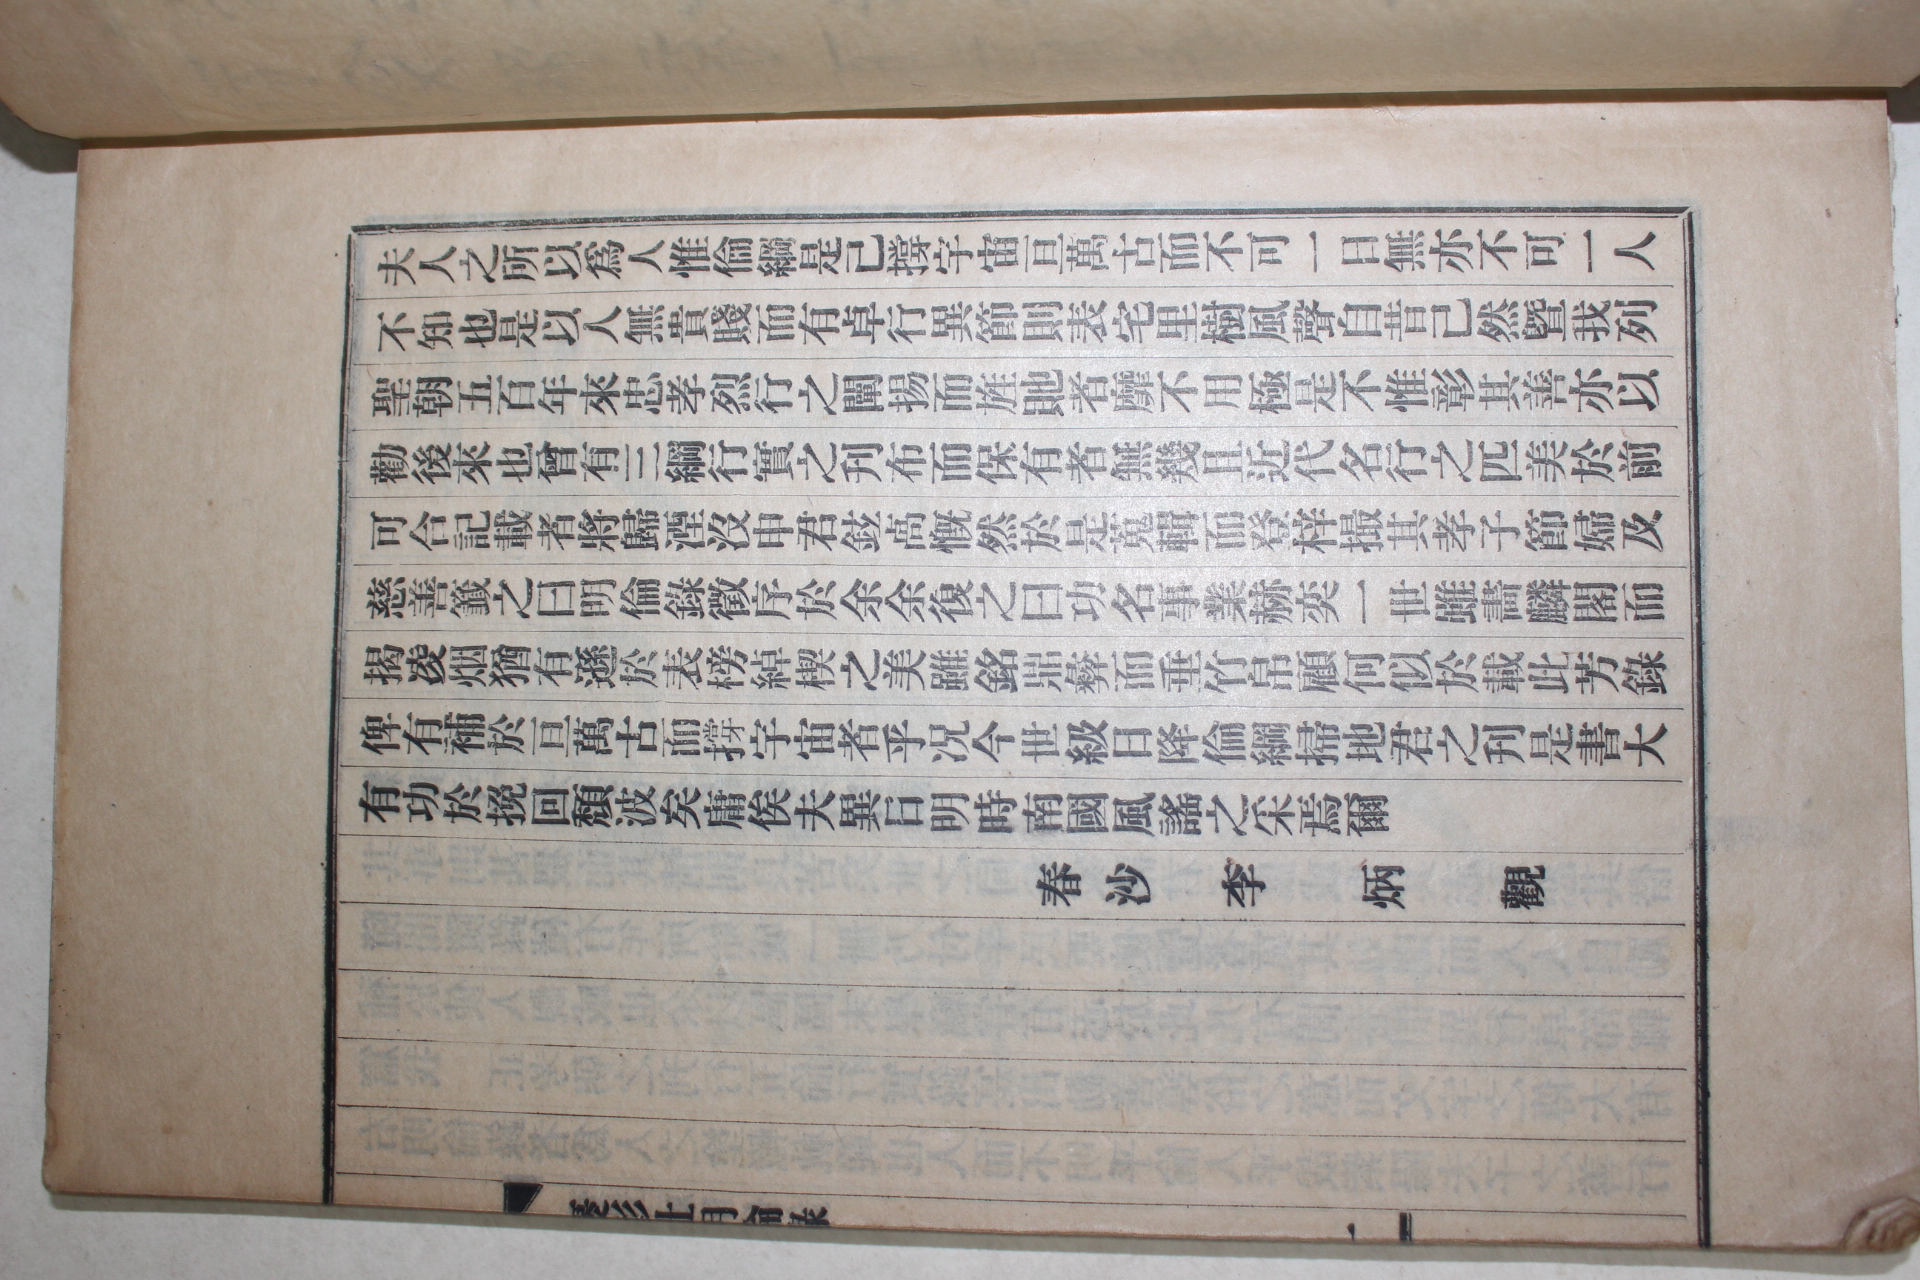 夫人之所以爲人惟倫綱是已撐宇宙亘萬古而不可一日無亦不可一人
不知也是以人無貴賤而有卓行異節則表宅里樹風聲自昔已然曁我列
聖朝五百年來忠孝烈行之闡揚而旌貤者靡不用極是不惟彰其善亦以
勸後來也曾有三綱行實之刊布而保有者無幾且近代名行之匹美於前
可合記載者將歸湮沒申君鉉高慨然於是蒐輯而登梓撮其孝子節婦及
慈善籤之曰明倫錄徵序於余余復之曰功名事業赫奕一世雖畵麟閣而
揭凌烟猶有遜於表榜綽楔之美雖銘鼎彝而垂竹帛顧何似於載此芳錄
俾有補於亘萬古而撐宇宙者乎况今世級日降倫綱掃地君之刊是書大
有功於挽回頹波矣庸俟夫異日明時南國風謠之采焉爾
春沙 李 炳 觀